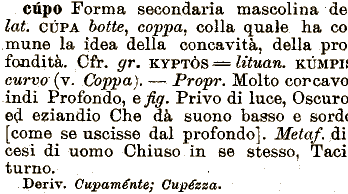 cúpo Forma secondaria mascolina de
lat. CÚPA botte, coppa, colla quale ha co
mune la idea della concavità, della pro
fondità. Cfr. gr. KYPTÒS = lituan. KÚMPIS
curvo (v. Coppa). — Propr. Molto concavo
indi Profondo, e fig. Privo di luce, Oscuro
ed eziandio Che dà suono basso e sordo
[come se uscisse dal profondo]. Metaf. di
cesi di uomo Chiuso in se stesso, Taci
turno.
Deriv. Cupaménte; Cupézza.